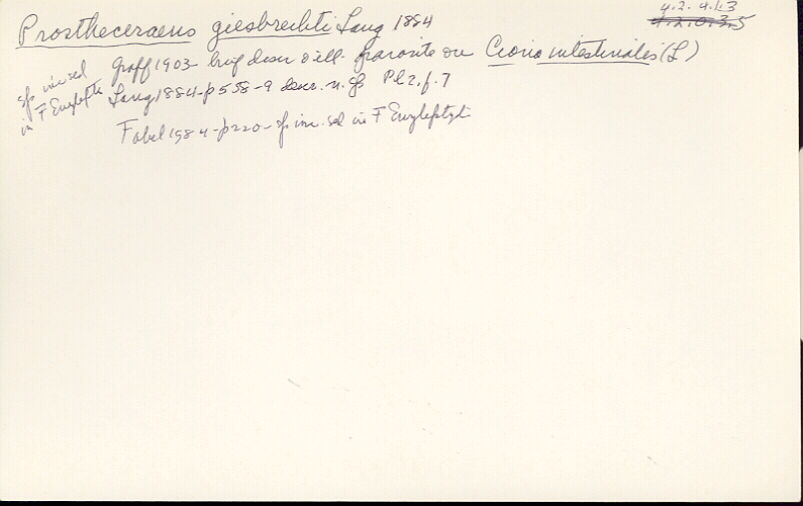 4.2.4.1.3
Prostheceraeus giesbrechti Lang 1884
4.2.0.3.5
Graff 1903 - brief descr & ill. parasite on Ciona intestinales (L)
Lang 1884 - p 558-9 descr. n. sp Pl 2, f. 7
sp inc sed
in F Euryleptid
Fabel 1984 - p 220 - sp inc. sed in F Euryleptid